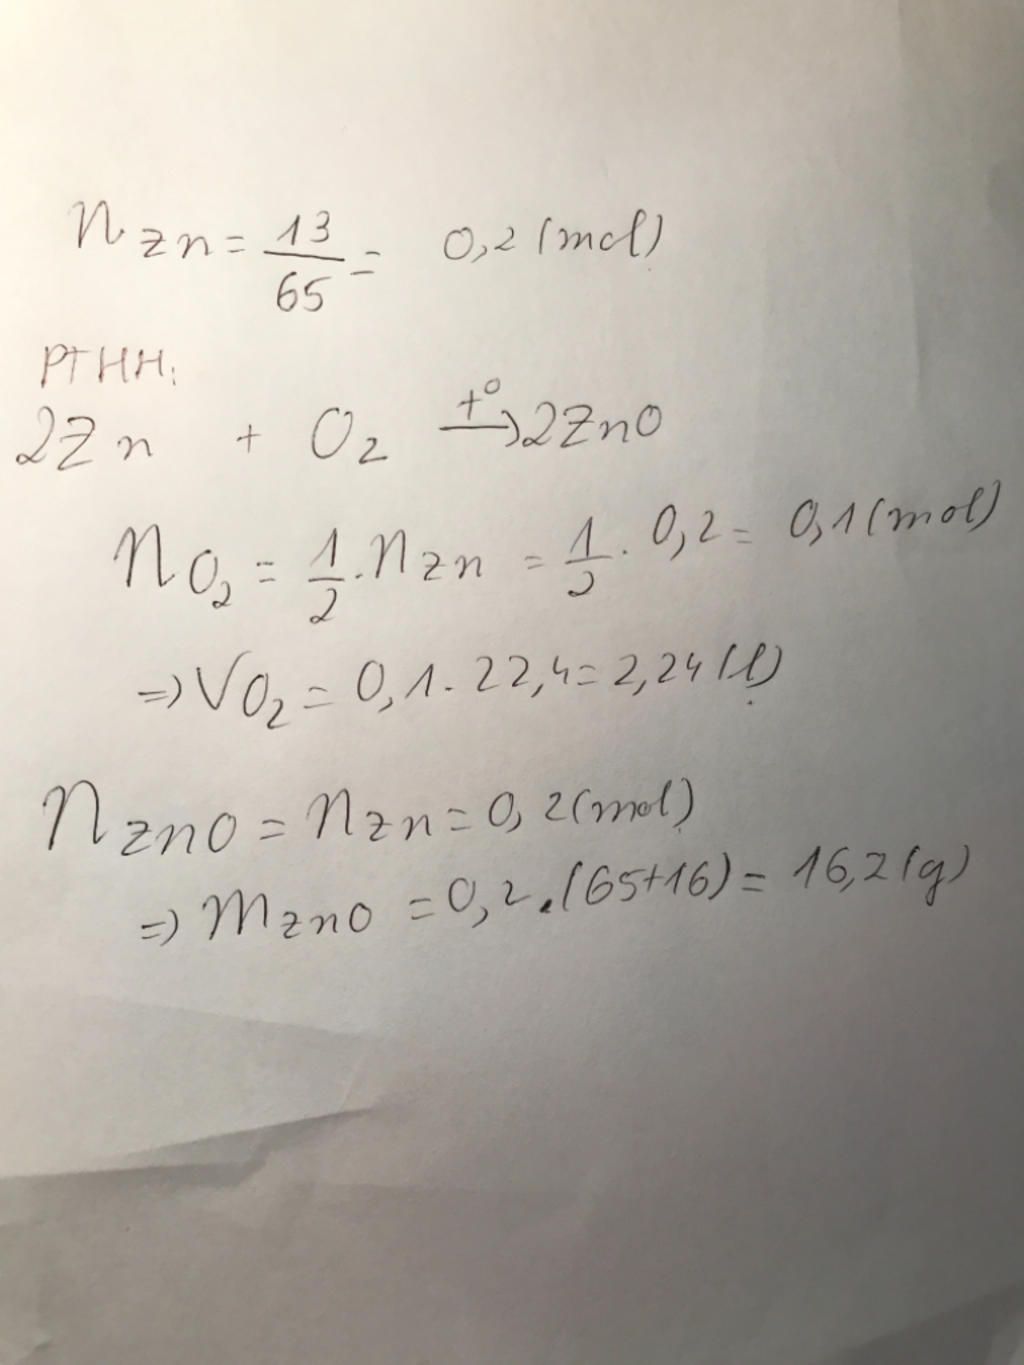 nZn = 13/65 = 0,2 (mol)
PTHH:
2Zn + O₂ →(t°) 2ZnO
nO₂ = 1/2 . nZn = 1/2 . 0,2 = 0,1 (mol)
=> VO₂ = 0,1 . 22,4 = 2,24 (l)
nZnO = nZn = 0,2 (mol)
=> mZnO = 0,2 . (65+16) = 16,2 (g)